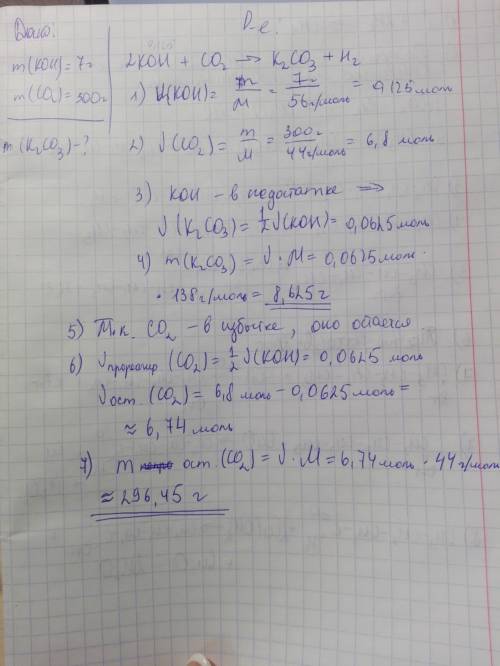 Дано:
m(KOH)=7г
m(CO₂)=300г
m(K₂CO₃)-?
Р-е:
2KOH + CO₂ → K₂CO₃ + H₂
1) ν(KOH)= m/M = 7г/56г/моль = 0,125моль
2) ν(CO₂)= m/M = 300г/44г/моль = 6,8 моль
3) KOH - в недостатке ⇒
ν(K₂CO₃)=½ν(KOH)=0,0625моль
4) m(K₂CO₃)=ν·M=0,0625моль·
·138г/моль=8,625г
5) Т.к. CO₂ - в избытке, оно остается
6) νпрореагир (CO₂)=½ν(KOH)=0,0625 моль
νост. (CO₂)=6,8моль-0,0625моль=
≈6,74моль
7) m ост. (CO₂)=ν·M=6,74моль·44г/моль
≈296,45 г